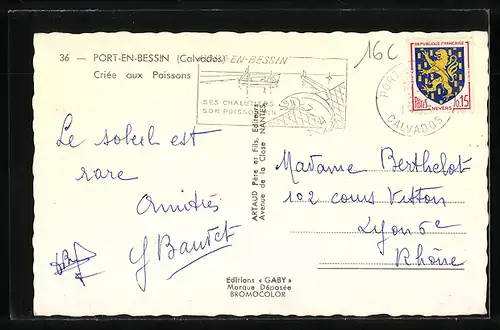 36 — PORT-EN-BESSIN (Calvados)
Criée aux Poissons
PORT-EN-BESSIN
SES CHALUTIERS
SON POISSON
16C
CALVADOS
REPUBLIQUE FRANÇAISE
Postes 0,15
NEVERS
Le soleil est
rare
Amitiés
Y Baudet
ARTAUD Père et Fils, Editeurs
Avenue de la Close NANTES
Madame Berthelot
102 cours Vitton
Lyon 6e
Rhône
Editions « GABY »
Marque Déposée
BROMOCOLOR